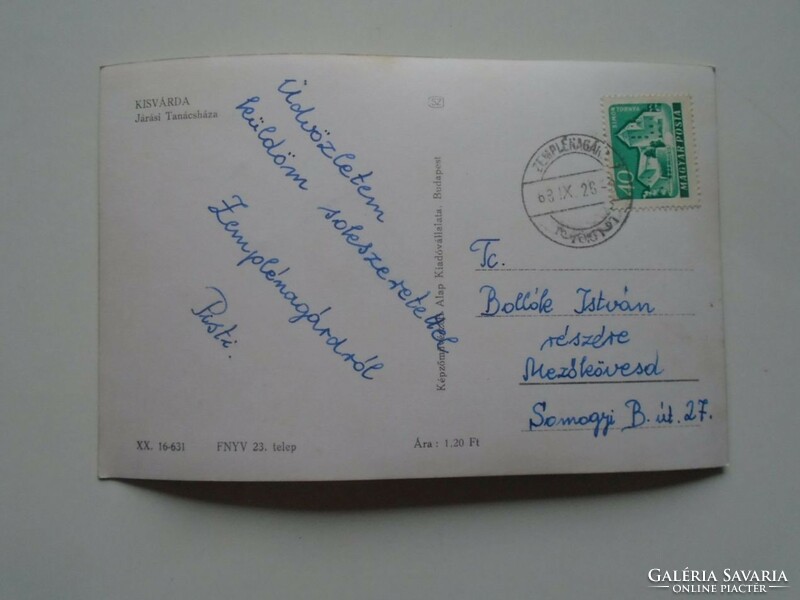 KISVÁRDA
Járási Tanácsháza
Üdvözletem
küldöm sokszeretettel,
Zemplénagárdról
Pisti.
Képzőművészeti Alap Kiadóvállalata, Budapest
40
MAGYAR POSTA
ZEMPLÉNAGÁR
63 IX. 26
Tc.
Bollók István
részére
Mezőkövesd
Somogyi B. út. 27.
XX. 16-631 FNYV 23. telep Ára : 1.20 Ft
GALÉRIA SAVARIA
ONLINE PIACTÉR